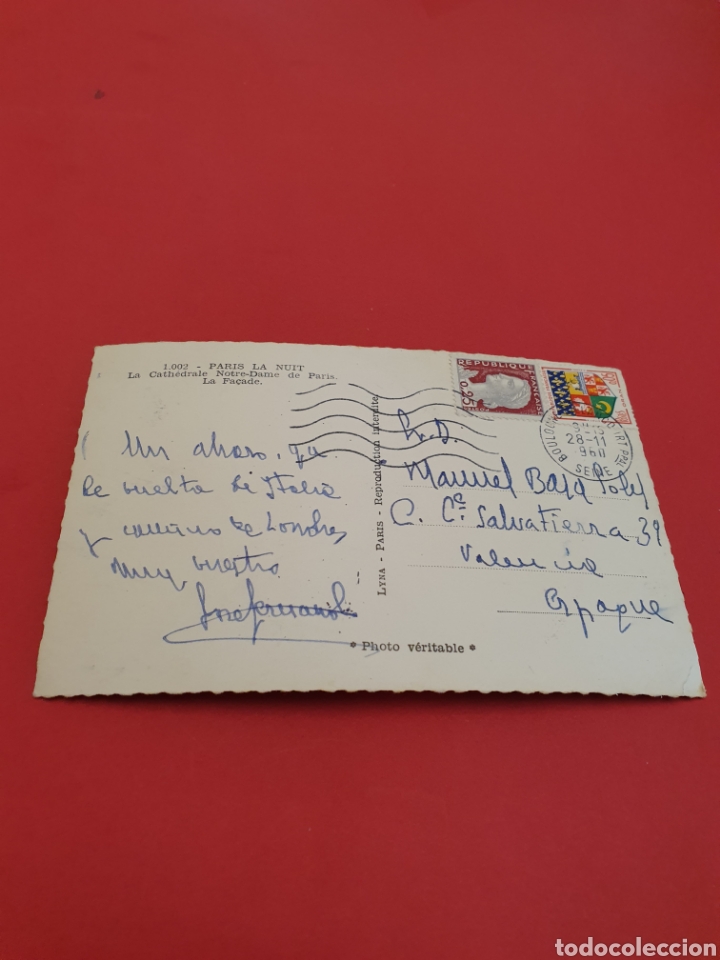 1.002 - PARIS LA NUIT
La Cathédrale Notre-Dame de Paris.
La Façade.
Un abrazo, 
de vuelta de Italia
y camino de Londres
muy vuestro
LYNA - PARIS - Reproduction interdite
REPUBLIQUE
FRANÇAISE
0,25
28-11
SEINE
Sr. D.
Manuel Baja
C. Cª Salvatierra-39
Valencia
Espagne
* Photo véritable *
todocoleccion